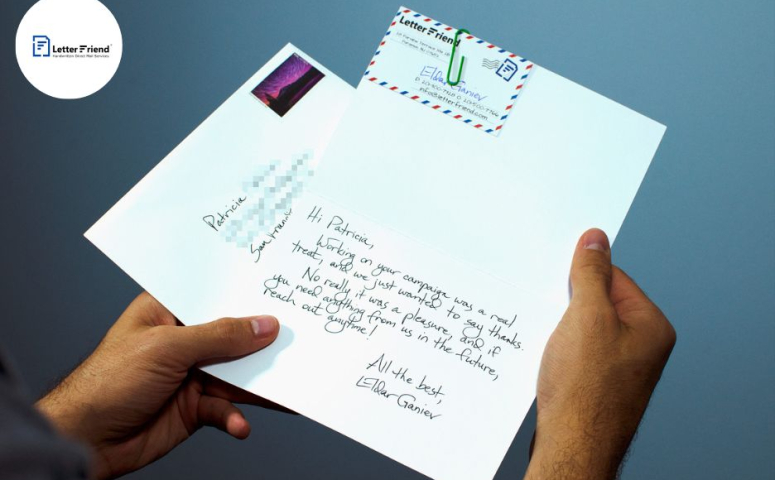 Letter Friend
Handwritten Direct Mail Services
Letter Friend
Eldar Ganiev
info@letterfriend.com
Patricia
San Franci
Hi Patricia,
Working on your campaign was a real
treat, and we just wanted to say thanks.
No really it was a pleasure, and if
you need anything from us in the future,
reach out anytime!
All the best,
Eldar Ganiev